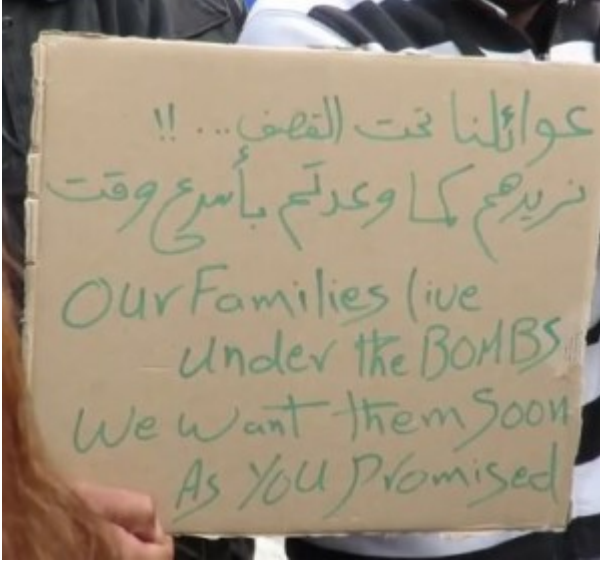 عوائلنا تحت القصف... !!
نريدهم كما وعدتم بأسرع وقت
Our Families live
under the BOMBS
We want them Soon
As YOU Promised